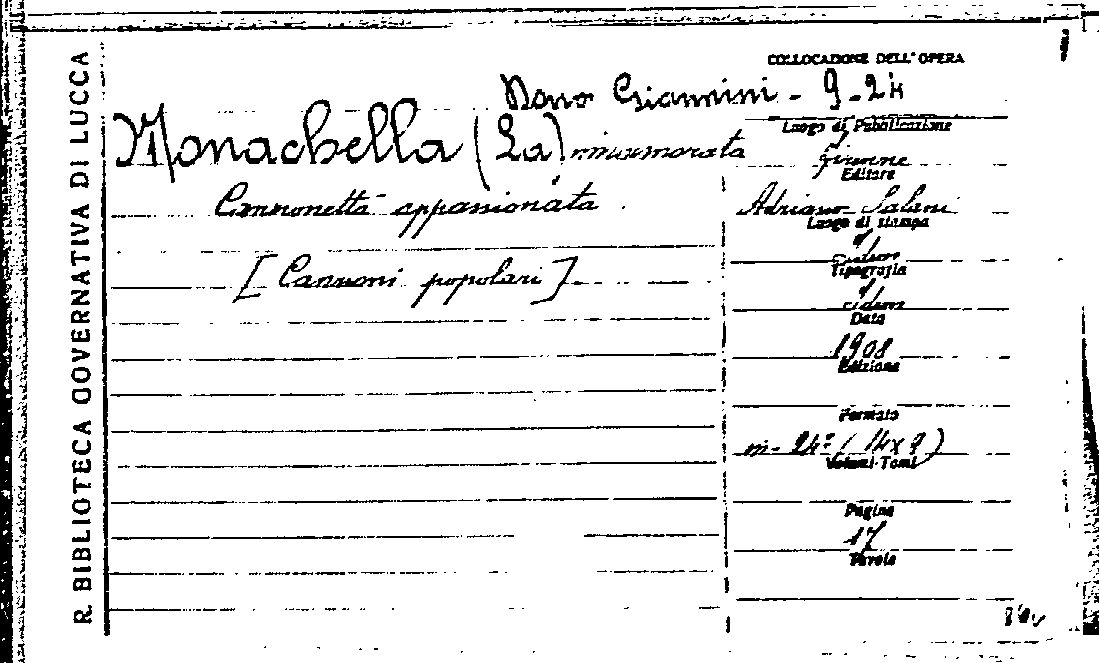 R. BIBLIOTECA GOVERNATIVA DI LUCCA
COLLOCAZIONE DELL'OPERA
Dono Giannini - 9-24
Monachella (La) innamorata
Canzonetta appassionata
[Canzoni popolari]
Luogo di Pubblicazione
Firenze
Editore
Adriano Salani
Luogo di stampa
Tipografia
Data
1908
Edizione
Formato
in-24º (14x9)
Volumi-Tomi
Pagine
17
Tavole